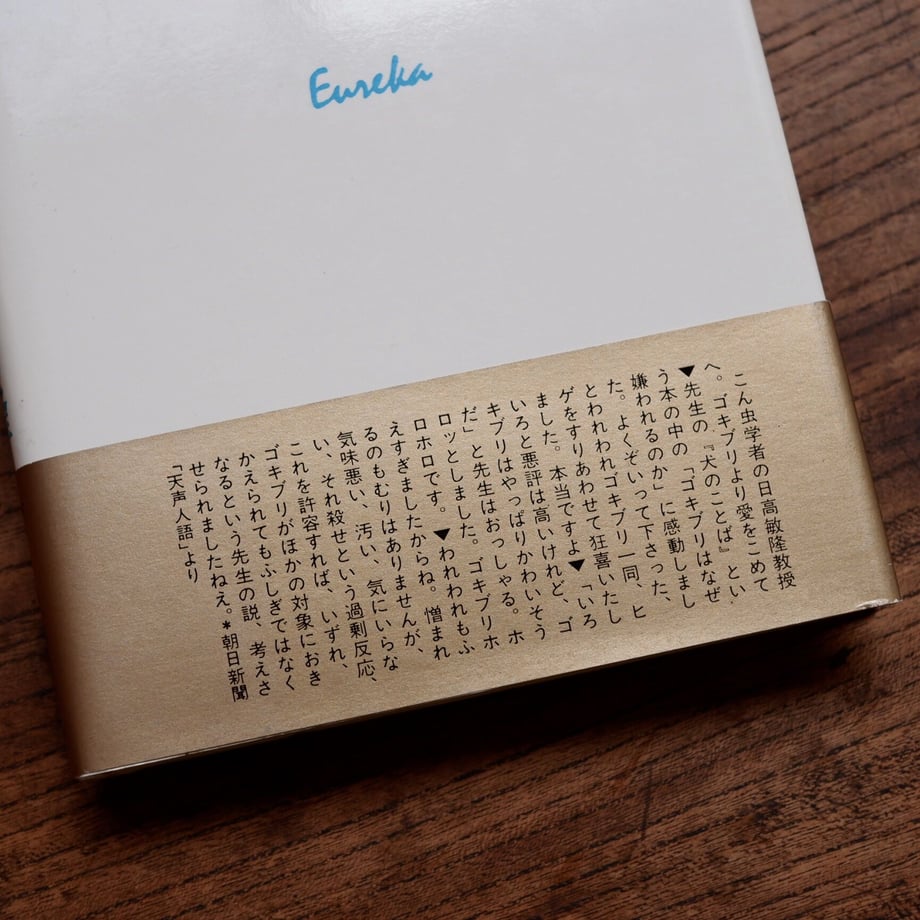 Eureka
こん虫学者の日高敏隆教授
へ。ゴキブリより愛をこめて
▼先生の『犬のことば』とい
う本の中の「ゴキブリはなぜ
嫌われるのか」に感動しまし
た。よくぞいって下さった、
とわれわれゴキブリ一同、ヒ
ゲをすりあわせて狂喜いたし
ました。本当ですよ▼「いろ
いろと悪評は高いけれど、ゴ
キブリはやっぱりかわいそう
だ」と先生はおっしゃる。ホ
ロッとしました。ゴキブリホ
ロホロです。▼われわれもふ
えすぎましたからね。憎まれ
るのもむりはありませんが、
気味悪い、汚い、気にいらな
い、それ殺せという過剰反応、
これを許容すれば、いずれ、
ゴキブリがほかの対象におき
かえられてもふしぎではなく
なるという先生の説、考えさ
せられましたねえ。*朝日新聞
「天声人語」より